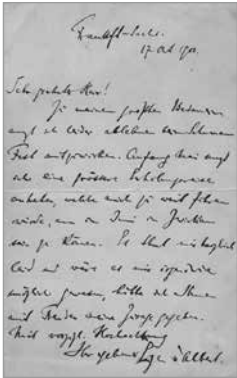 Frankft-Sachs.
17. Okt 1901.
Sehr geehrter Herr!
Zu meinem größten Bedauern
muß ich leider ablehnen
Fest mitzuwirken. Anfang muß
ich eine grössere Erholungsreise
antreten, welche mich zu weit führen
würde, um in
zu können. Es thut mir
leid mir wäre es mir irgendwie
möglich gewesen, hätte ich Ihnen
mit Freuden meine Zusage gegeben.
Mit vorzügl. Hochachtung
Ihr ergebener Eugen d'Albert.